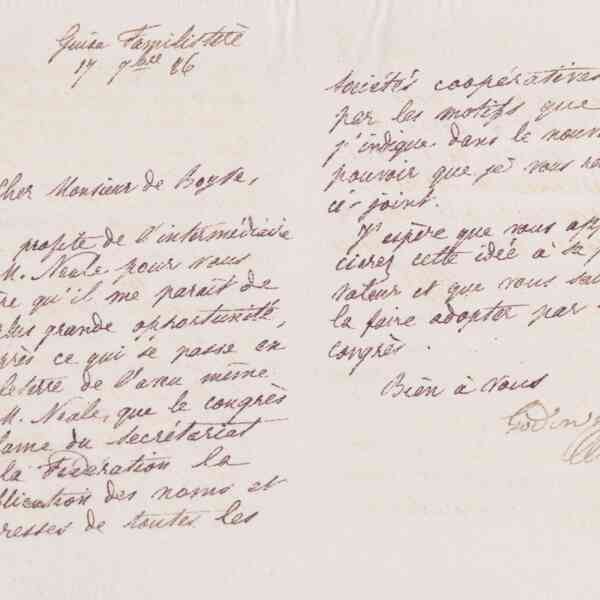 Guise Familistère
17 7bre 86
Cher Monsieur de Boyve,
profite de l'intermédiaire
M. Neale pour vous
re qu'il me parait de
plus grande opportunité,
près ce qui se passe en
leterre de l'aveu même
M. Neale, que le congrès
lame du secrétariat
la Fédération la
blication des noms et
resses de toutes les
sociétés coopératives
par les motifs que
j'indique dans le nouv
pouvoir que je vous re
ci-joint.
J'espère que vous app
cierez cette idée à sa
valeur et que vous
la faire adopter par
congrès.
Bien à vous
Godin